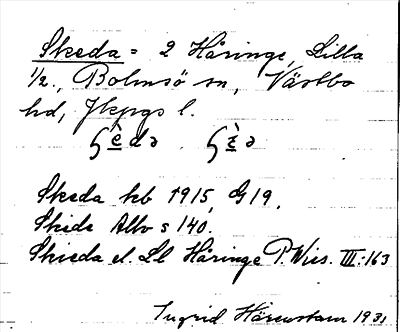 Skeda = 2 Håringe, Lilla
1/2., Bolmsö sn, Västbo
hd, Jkpgs l.
Skeda kb 1915, G19.
Skide Allv s 140.
Skieda el. Ll Håringe P. Wies. III:163
Ingrid Härenstam 1931